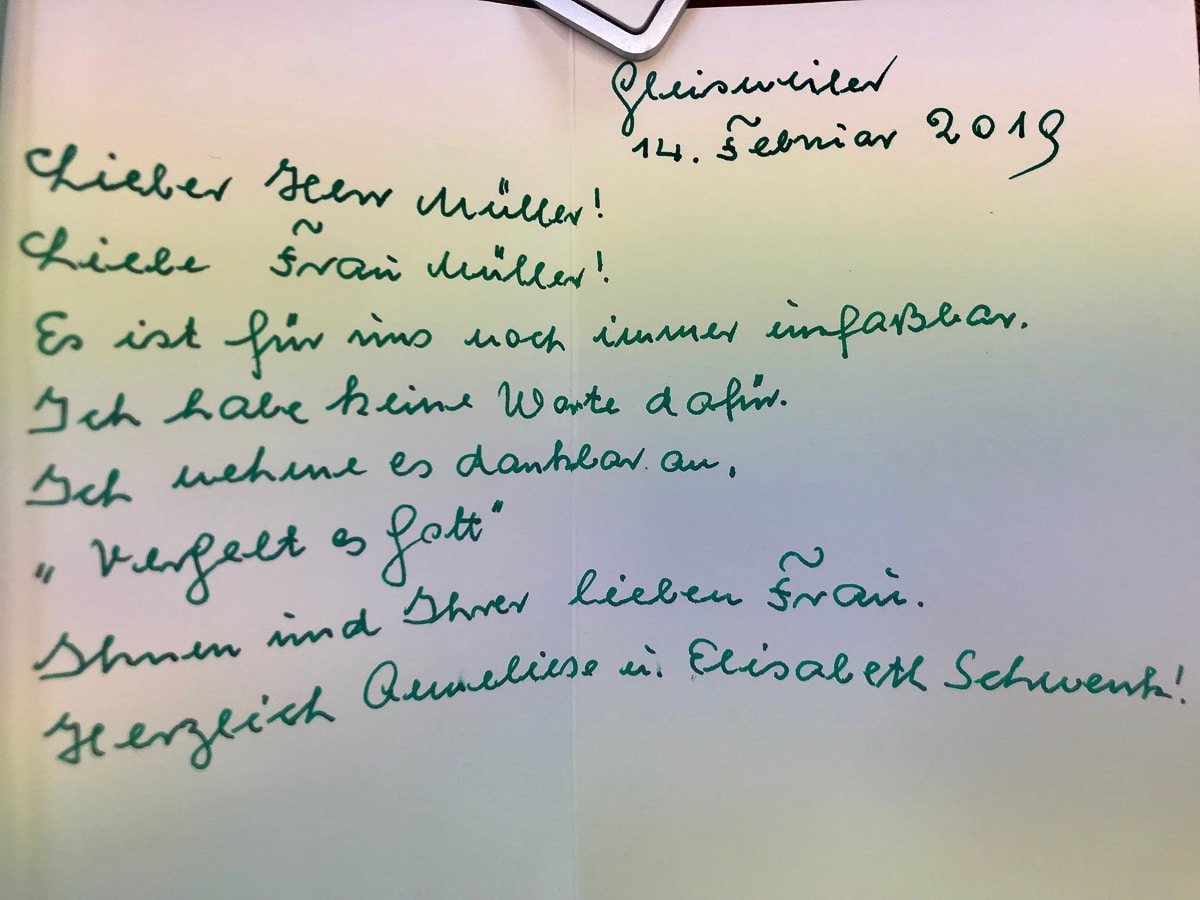 Gleisweiler
14. Februar 2019
Lieber Herr Müller!
Liebe Frau Müller!
Es ist für uns noch immer unfaßbar.
Ich habe keine Worte dafür.
Ich nehme es dankbar an.
„Vergelt es Gott"
Ihnen und Ihrer lieben Frau.
Herzlich Anneliese u. Elisabeth Schwenk!